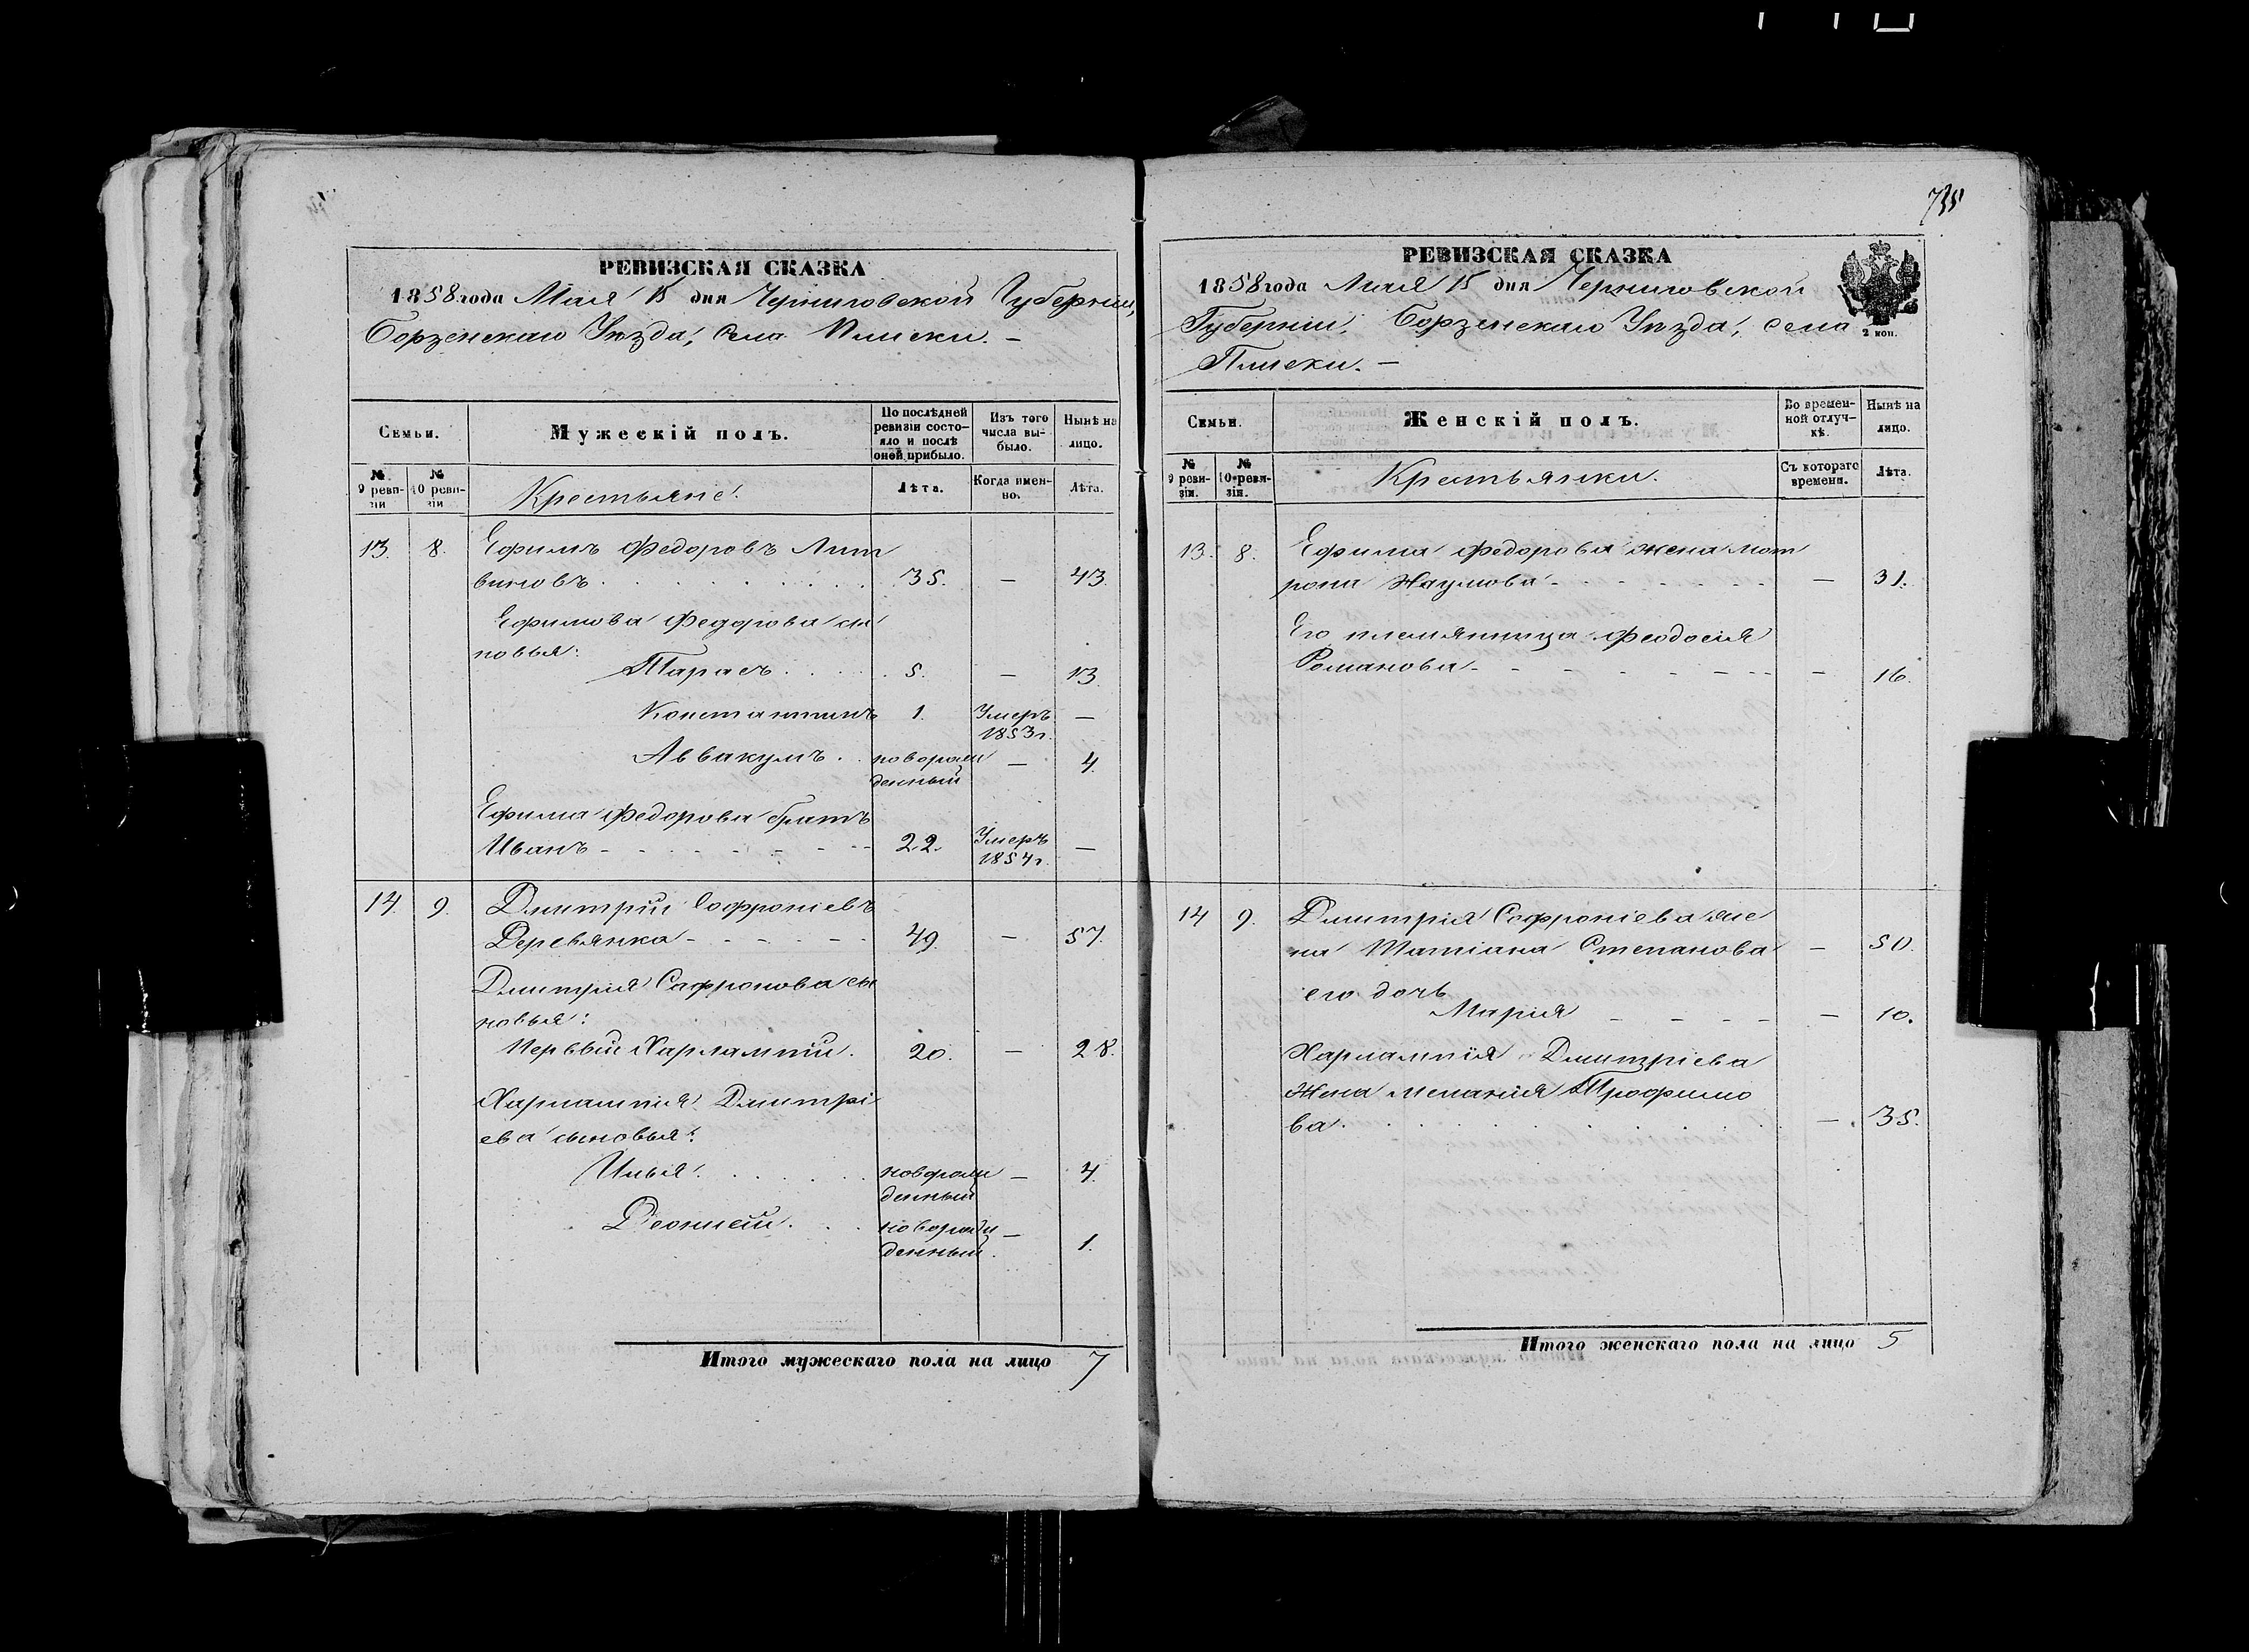 735
РЕВИЗСКАЯ СКАЗКА
1858 года Мая 15 дня Черниговской Губерніи,
Борзенскаго Уѣзда, Села Плиски. –
Семьи.
Мужескій полъ.
По послѣдней ревизіи состояло и послѣ оной прибыло.
Изъ того числа выбыло.
Нынѣ на лицо.
№ 9 ревизіи
№ 10 ревизіи
Крестьяне.
Лѣта.
Когда именно.
Лѣта.
13. 8. Ефимъ Федоровъ Лит
виновъ . . . . . . 35. – 43.
Ефимова Федорова сы
новья:
Тарасъ . . . . 5. – 13.
Константинъ 1. Умеръ 1853 г. –
Аввакумъ . . новорож
денный – 4.
Ефима Федорова братъ
Иванъ - - - - - - 22. Умеръ 1854 г. –
14. 9. Дмитрій Софроніевъ
Деревянка - - - - - 49. – 57.
Дмитрия Софронова сы
новья:
Первый Харлампій. 20. – 28.
Харлампія Дмитрі
ева сыновья:
Илья . . . . . новорож
денный – 4.
Деонисій . . . новорож
денный. – 1.
Итого мужескаго пола на лицо 7
РЕВИЗСКАЯ СКАЗКА
1858 года Мая 15 дня Черниговской
Губерніи, Борзенскаго Уѣзда, села
Плиски. –
2 коп.
Семьи.
Женскій полъ.
Во временной отлучкѣ.
Нынѣ на лицо.
№ 9 ревизіи.
№ 10 ревизіи.
Крестьянки.
Съ котораго времени.
Лѣта.
13. 8. Ефима Федорова жена Мот
рона Наумова - - - - - - – 31.
Его племянница Феодосія
Романова - - - - - - – 16.
14 9. Дмитрія Софроніева же
на Татіана Степанова – 50.
его дочь
Марія - - - - – 10.
Харлампія Дмитріева
Жена Меланія Трофимо
ва . . . . . . – 35.
Итого женскаго пола на лицо 5